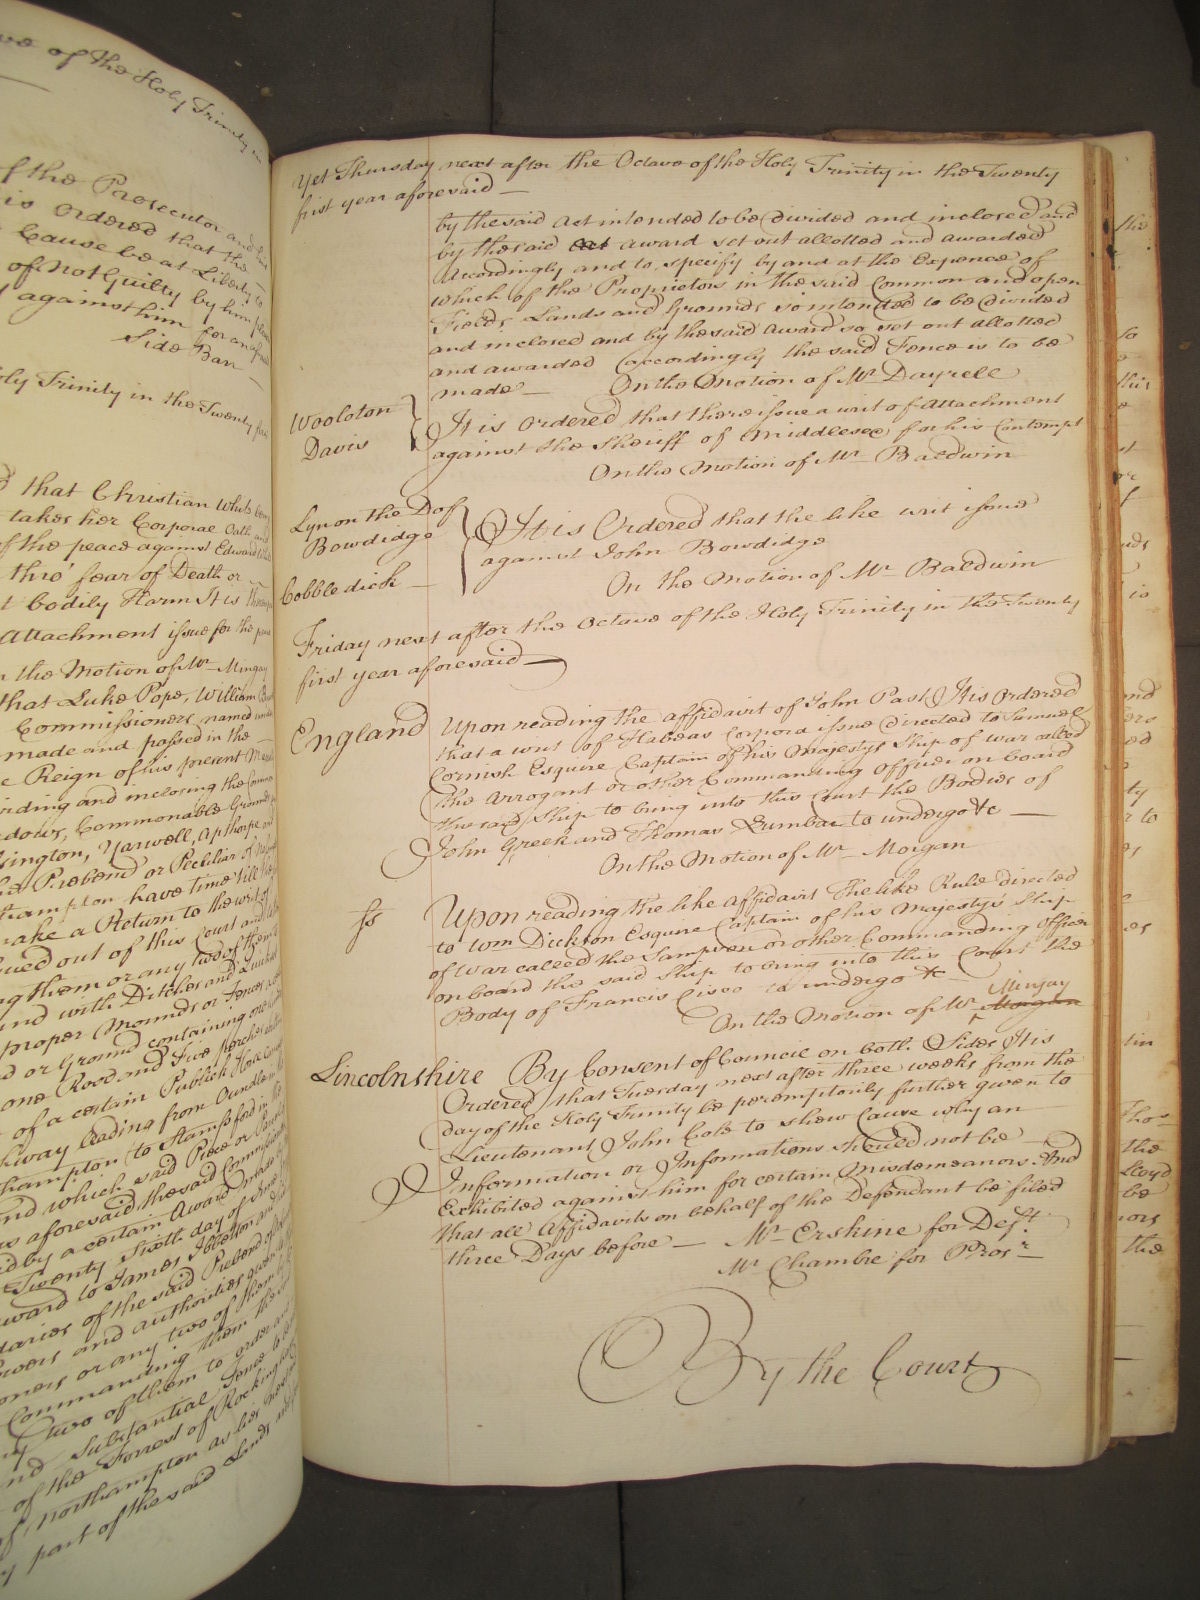 ve of the Holy Trinity in
of the Prosecutor and
is ordered that the
Cause be at Liberty to
of Not Guilty by him
against him for an
Side Bar
oly Trinity in the Twenty first
that Christian White
takes her Corporal Oath and
of the peace against Edward
thro' fear of Death or
bodily Harm It is
Attachment issue for the
n the Motion of Mr Mingay
that Luke Pope, William
Commissioners named
made and passed in the
e Reign of his present
iding and inclosing the
dows, Commonable Grounds
sington, Yarwell, Apthorpe and
he Prebend or Peculiar of
thampton have time till
make a Return to the writ of
sued out of this Court and
ng them or any two of them
und with Ditches and Quickset
proper Mounds or Fences
d or Ground containing one
one Rood and Five perches
of a certain Publick
hway leading from Oundle in
hampton to Stampford in
and which said Piece or
as aforesaid the said Commissioners
id by a certain Award made
Twenty Sixth day of
ward to James Ibbetson and
daries of the said Prebend of
owers and authorities
oners or any two of them
Commanding them the
ny two of them to order
nd substantial Fence to be
of the Forrest of Rockingham
of Northampton as lies
y part of the said Lands
Yet Thursday next after the Octave of the Holy Trinity in the Twenty
first year aforesaid —
by the said Act intended to be divided and inclosed and
by the said Act award set out allotted and awarded
Accordingly and to specify by and at the Expence of
which of the Proprietors in the said Common and open
Fields Lands and Grounds so intended to be divided
and inclosed and by the said Award so set out allotted
and awarded accordingly the said Fence is to be
made — On the Motion of Mr Dayrell
Wooloton
Davis
It is ordered that there issue a writ of Attachment
against the Sheriff of Middlesex for his Contempt
On the Motion of Mr Baldwin
Lyn on the Dof
Bowdidge
Cobbledick —
It is Ordered that the like writ issue
against John Bowdidge
On the Motion of Mr Baldwin
Friday next after the Octave of the Holy Trinity in the Twenty
first year aforesaid —
England Upon reading the affidavit of John Past It is ordered
that a writ of Habeas Corpora issue directed to Samuel
Cornish Esquire Captain of his Majestys Ship of war called
the Arrogant or other Commanding Officer on board
the said Ship to bring into this Court the Bodies of
John Greek and Thomas Lumbar to undergo &c —
On the Motion of Mr Morgan
Ss Upon reading the like Affidavit The like Rule directed
to Wm Dickson Esquire Captain of his Majestys Ship
of War called the Sampson or other Commanding Officer
on board the said Ship to bring into this Court the
Body of Francis Cisco to undergo &c
On the Motion of Mr Mingay Morgan
Lincolnshire By Consent of Council on both Sides It is
Ordered that Tuesday next after three weeks from the
day of the Holy Trinity be peremptorily further given to
Lieutenant John Cole to shew Cause why an
Information or Informations should not be
Exhibited against him for certain Misdemeanors And
that all Affidavits on behalf of the Defendant be filed
three Days before — Mr Erskine for Deft.
Mr Chambre for Prosr
By the Court